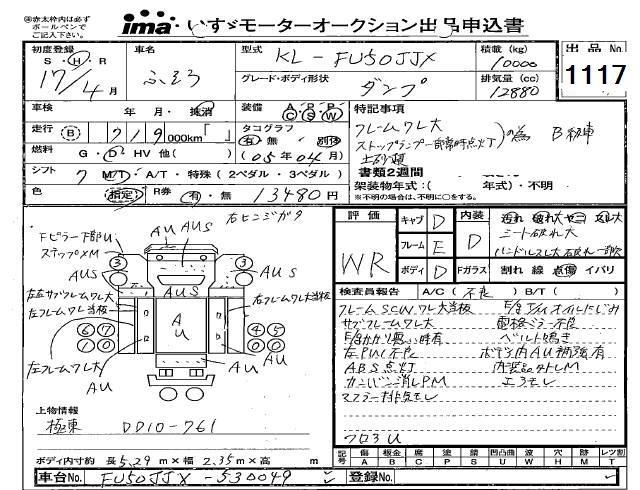 ㊟赤太枠内は必ず
ボールペンで
ご記入下さい。
ima いすゞモーターオークション出品申込書
初度登録 車名 型式 KL-FU50JJX 積載(kg) 10000 出品No.
S・H・R
17/4月 ふそう グレード・ボディ形状 ダンプ 排気量(cc) 12880 1117
車検 年 月・抹消 装備 A P P C S W 特記事項
走行 B 719 000km「 」 タコグラフ 有・無 別体 フレームワレ大
ストップランプ一部常時点灯 の為 B級車
燃料 G・D・HV 他( ) (05年04月) 土砂禁
シフト 7 M/T・A/T・特殊(2ペダル・3ペダル) 書類2週間
架装物年式:( 年式)・不明
色 指定 R券 有・無 13480円 ※不明の場合は、不明に○をする。
右ヒンジガタ
評価 WR キャブ D フレーム E ボディ D
内装 D 汚れ 破れ大 ヤニ スレ大
シート破れ大
ハンドルスレ大 破れ一部欠
Fガラス 割れ 線 点傷 イバリ
Fピラー下部U
ステップXM
AU AUS
AUS AUS
AUS
左右サブフレームワレ大
左フレームワレ当板
右フレームワレ大当板
A
U
3 3
6 7 4 5
1 0 1 0
左フレームワレ大
AU AU AU
検査員報告 A/C( 不良 ) B/T( )
フレームSCUWワレ大当板 E/gT/Mオイルにじみ
サブフレームワレ大 電格ミラー不良
E/gかかり悪い時有 ベルト鳴き
左P/W不良 ボデー内AU補強有
ABS点灯 内装品外しM
カンバン消しPM エアモレ
マフラー排気モレ
フロ3U
上物情報
極東 DD10-761
ボディ内寸約 長 5.29 m×幅 2.35 m×高 m
記号 傷 板金 腐 塗 サビ 凹 凸凹曲 波 穴 無 レッツ割
A B C P S U W H M T
車台No. FU50JJX-530049 登録No.